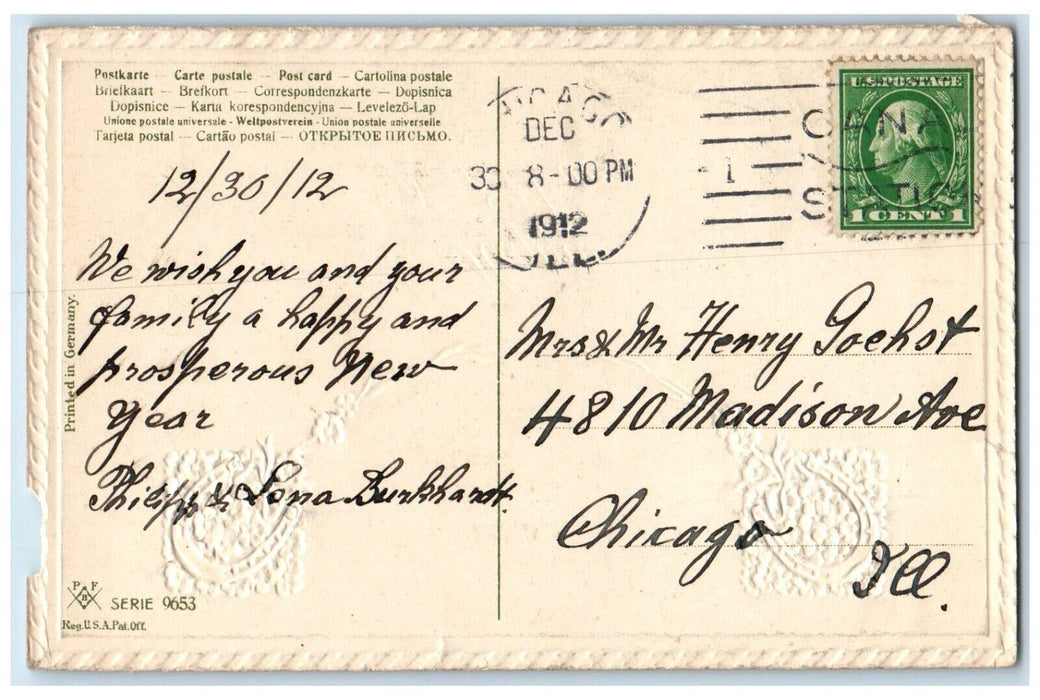 Postkarte – Carte postale – Post card – Cartolina postale
Briefkaart – Brefkort – Correspondenzkarte – Dopisnica
Dopisnice – Karta korespondencyjna – Levelező-Lap
Unione postale universale - Weltpostverein - Union postale universelle
Tarjeta postal – Cartão postal – ОТКРЫТОЕ ПИСЬМО.
12/30/12
We wish you and your
family a happy and
prosperous New
Year
Philipp & Lena Burkhardt.
Printed in Germany.
P F
B
SERIE 9653
Reg. U.S.A. Pat. Off.
CHICAGO
DEC
30 8-00 PM
1912
ILL.
1
CANAL
STATION
U.S. POSTAGE
1 CENT 1
Mrs & Mr Henry Goehst
4810 Madison Ave
Chicago
Ill.